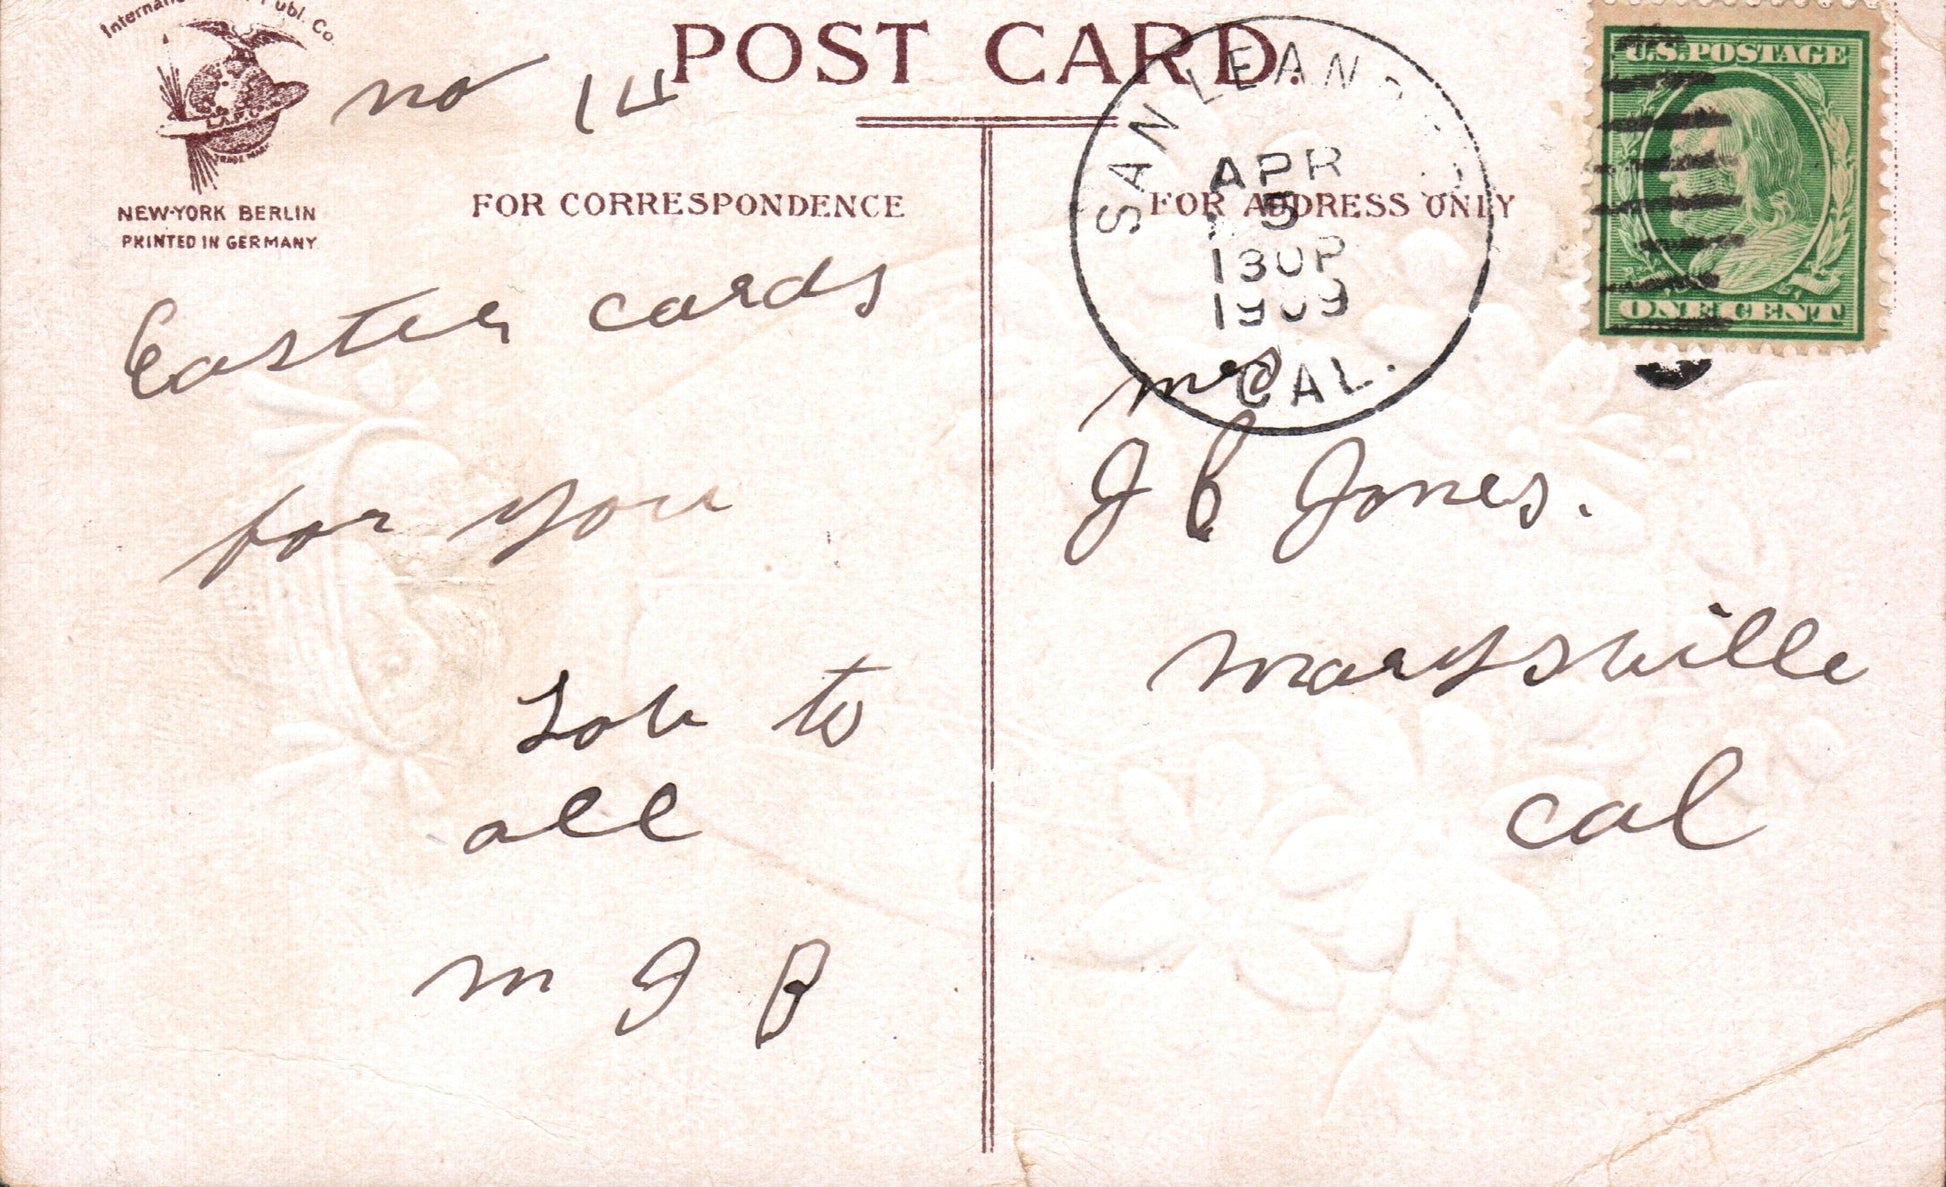 Publ. Co.
I.A.P.C
TRADE MARK
NEW-YORK BERLIN
PRINTED IN GERMANY
POST CARD.
FOR CORRESPONDENCE
FOR ADDRESS ONLY
no
Easter cards
for you
to
all
M J B
SAN
APR
5
130P
1909
CAL.
U.S. POSTAGE
ONE CENT
J Jones.
Marysville
Cal